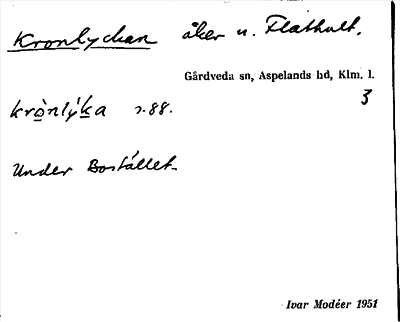 Kronlyckan åker u. Flathult.
Gårdveda sn, Aspelands hd, Klm. l.
3
krònlýka r.88.
Under Bostället.
Ivar Modéer 1951